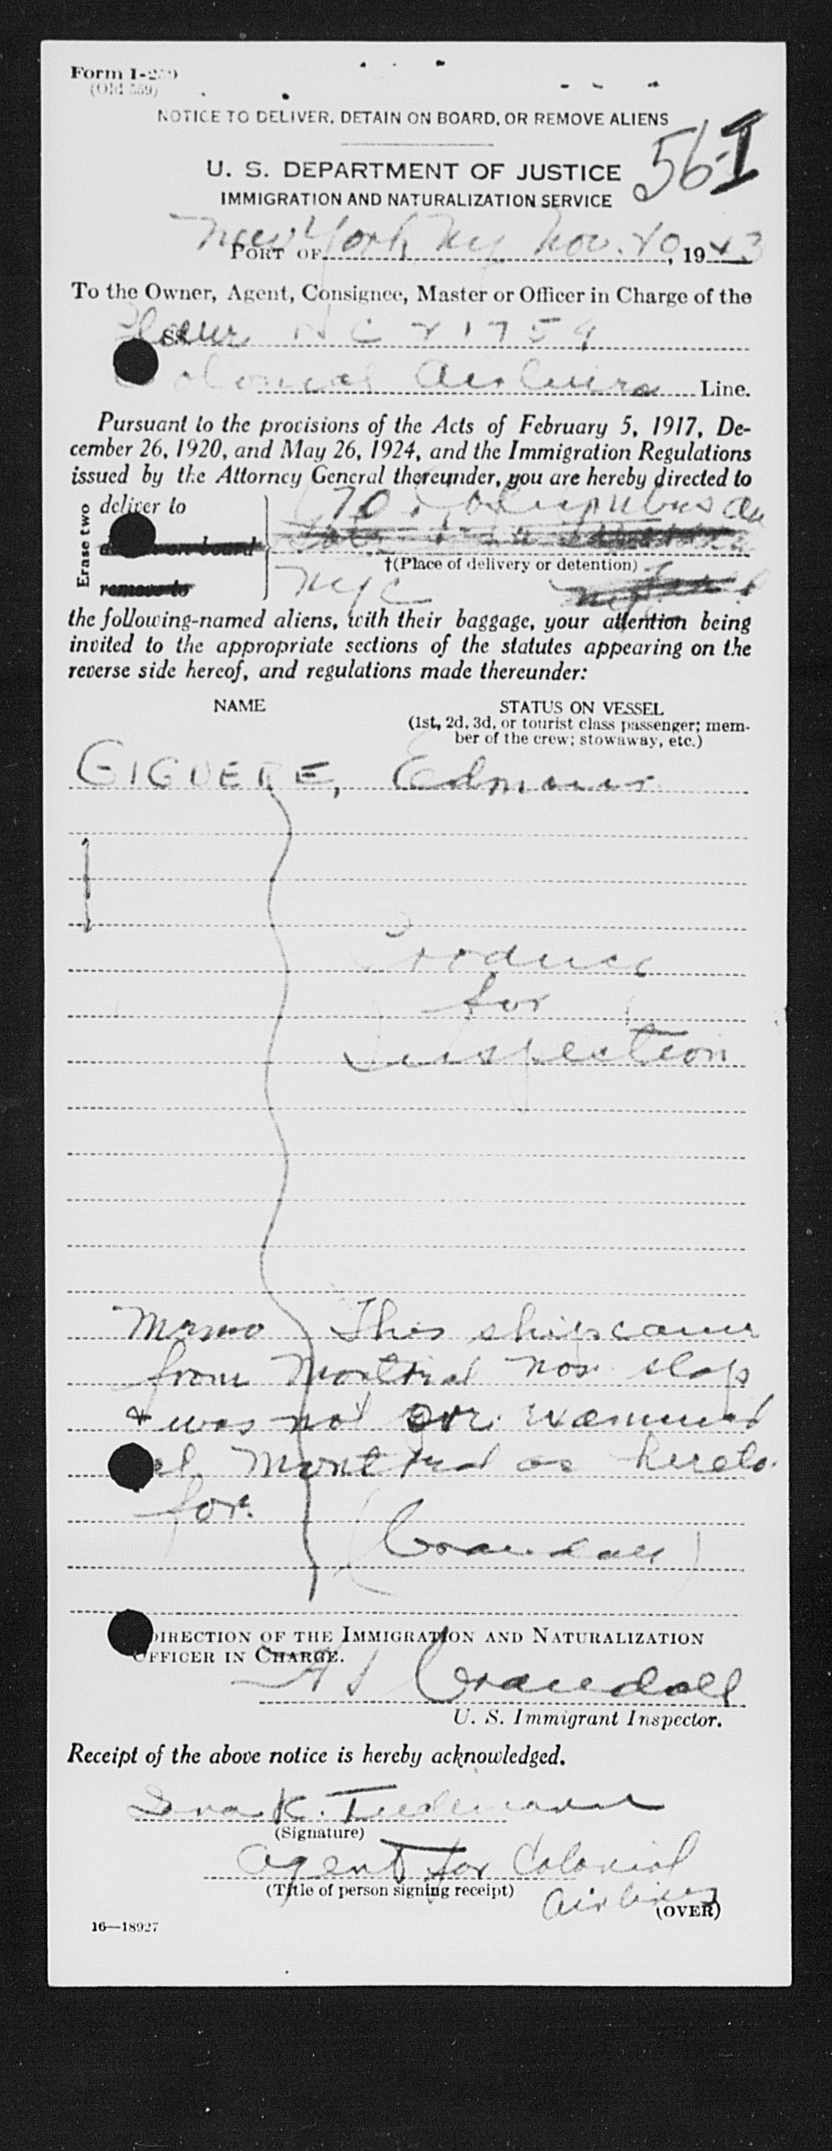 Form I-259
(Old 559)
NOTICE TO DELIVER, DETAIN ON BOARD, OR REMOVE ALIENS
56-I
U. S. DEPARTMENT OF JUSTICE
IMMIGRATION AND NATURALIZATION SERVICE
New York Ny Nov. 20 43
PORT OF , 19
To the Owner, Agent, Consignee, Master or Officer in Charge of the
NC 21759
Colonial Airlines Line.
Pursuant to the provisions of the Acts of February 5, 1917, De-
cember 26, 1920, and May 26, 1924, and the Immigration Regulations
issued by the Attorney General thereunder, you are hereby directed to
Erase two
deliver to 70 Columbus Av
on board
†(Place of delivery or detention)
remove to NYC
the following-named aliens, with their baggage, your attention being
invited to the appropriate sections of the statutes appearing on the
reverse side hereof, and regulations made thereunder:
NAME STATUS ON VESSEL
(1st, 2d, 3d, or tourist class passenger; mem-
ber of the crew; stowaway, etc.)
GIGUERE,
Produce
for
Inspection
Memo This ship came
from Montreal non stop
& was not
at Montreal as hereto
for.
(Crandall)
DIRECTION OF THE IMMIGRATION AND NATURALIZATION
OFFICER IN CHARGE.
Crandall
U. S. Immigrant Inspector.
Receipt of the above notice is hereby acknowledged.
K. Tiedemann
(Signature)
Agent for Colonial
(Title of person signing receipt) Airlines
(OVER)
16—18927